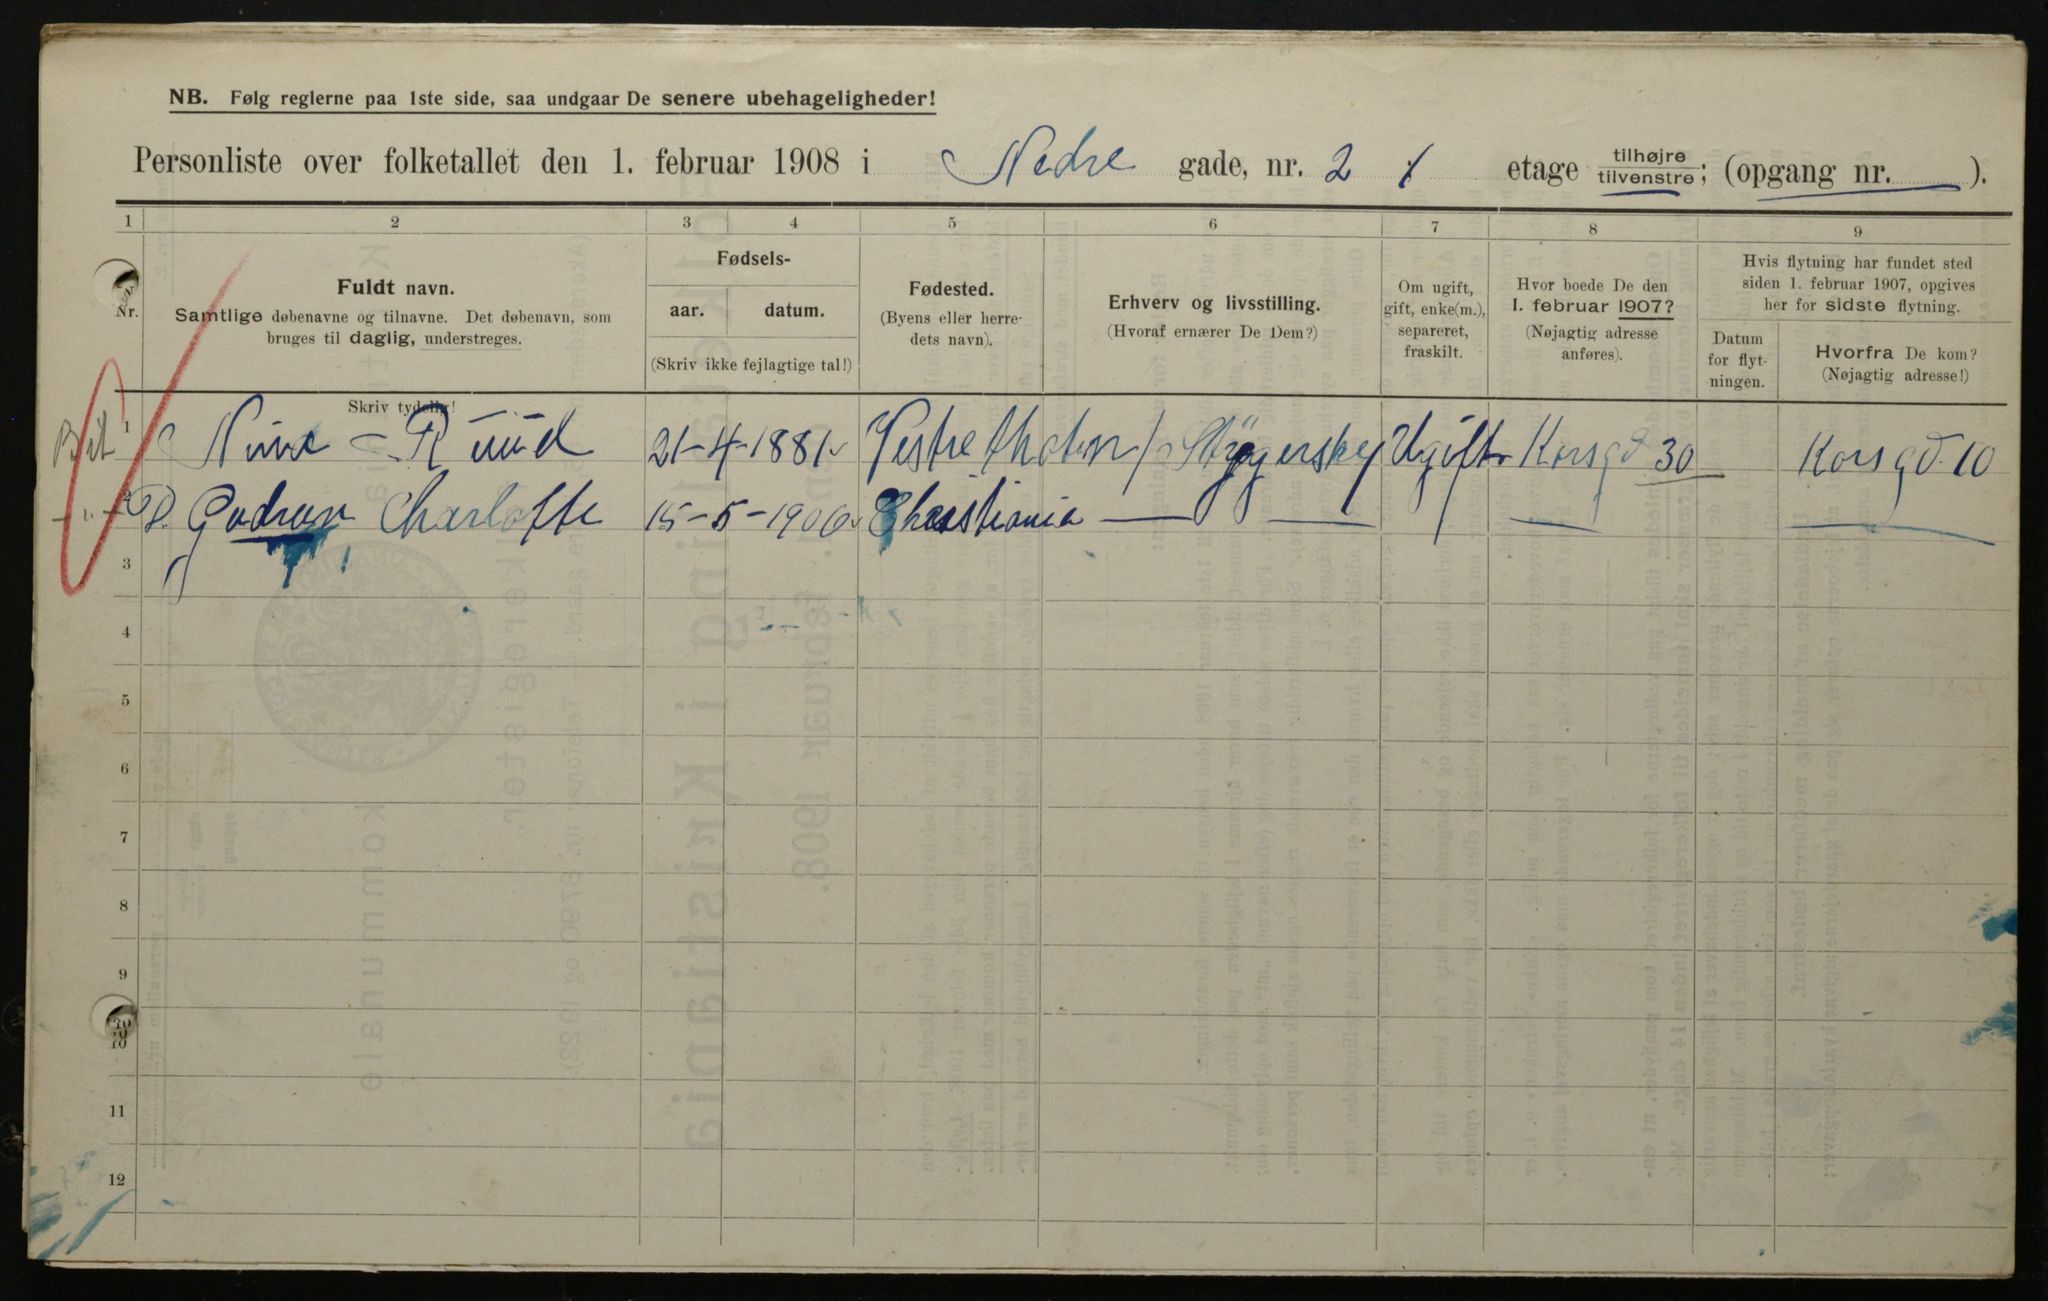 NB. Følg reglerne paa 1ste side, saa undgaar De senere ubehageligheder!
Personliste over folketallet den 1. februar 1908 i Nedre gade, nr. 2 1 etage tilhøjre tilvenstre; (opgang nr. ).
1 2 3 4 5 6 7 8 9
Nr.
Fuldt navn.
Samtlige døbenavne og tilnavne. Det døbenavn, som
bruges til daglig, understreges.
Skriv tydelig!
Fødsels-
aar. datum.
(Skriv ikke fejlagtige tal!)
Fødested.
(Byens eller herre-
dets navn).
Erhverv og livsstilling.
(Hvoraf ernærer De Dem?)
Om ugift,
gift, enke(m.),
separeret,
fraskilt.
Hvor boede De den
1. februar 1907?
(Nøjagtig adresse
anføres).
Hvis flytning har fundet sted
siden 1. februar 1907, opgives
her for sidste flytning.
Datum
for flyt-
ningen.
Hvorfra De kom?
(Nøjagtig adresse!)
1 Ruud 21-4-1881 Vestre Ugift Korsgd 30 Korsgd. 10
2 D. Gudrun Charlotte 15-5-1900 Christiania — — — —
3
4
5
6
7
8
9
10
11
12